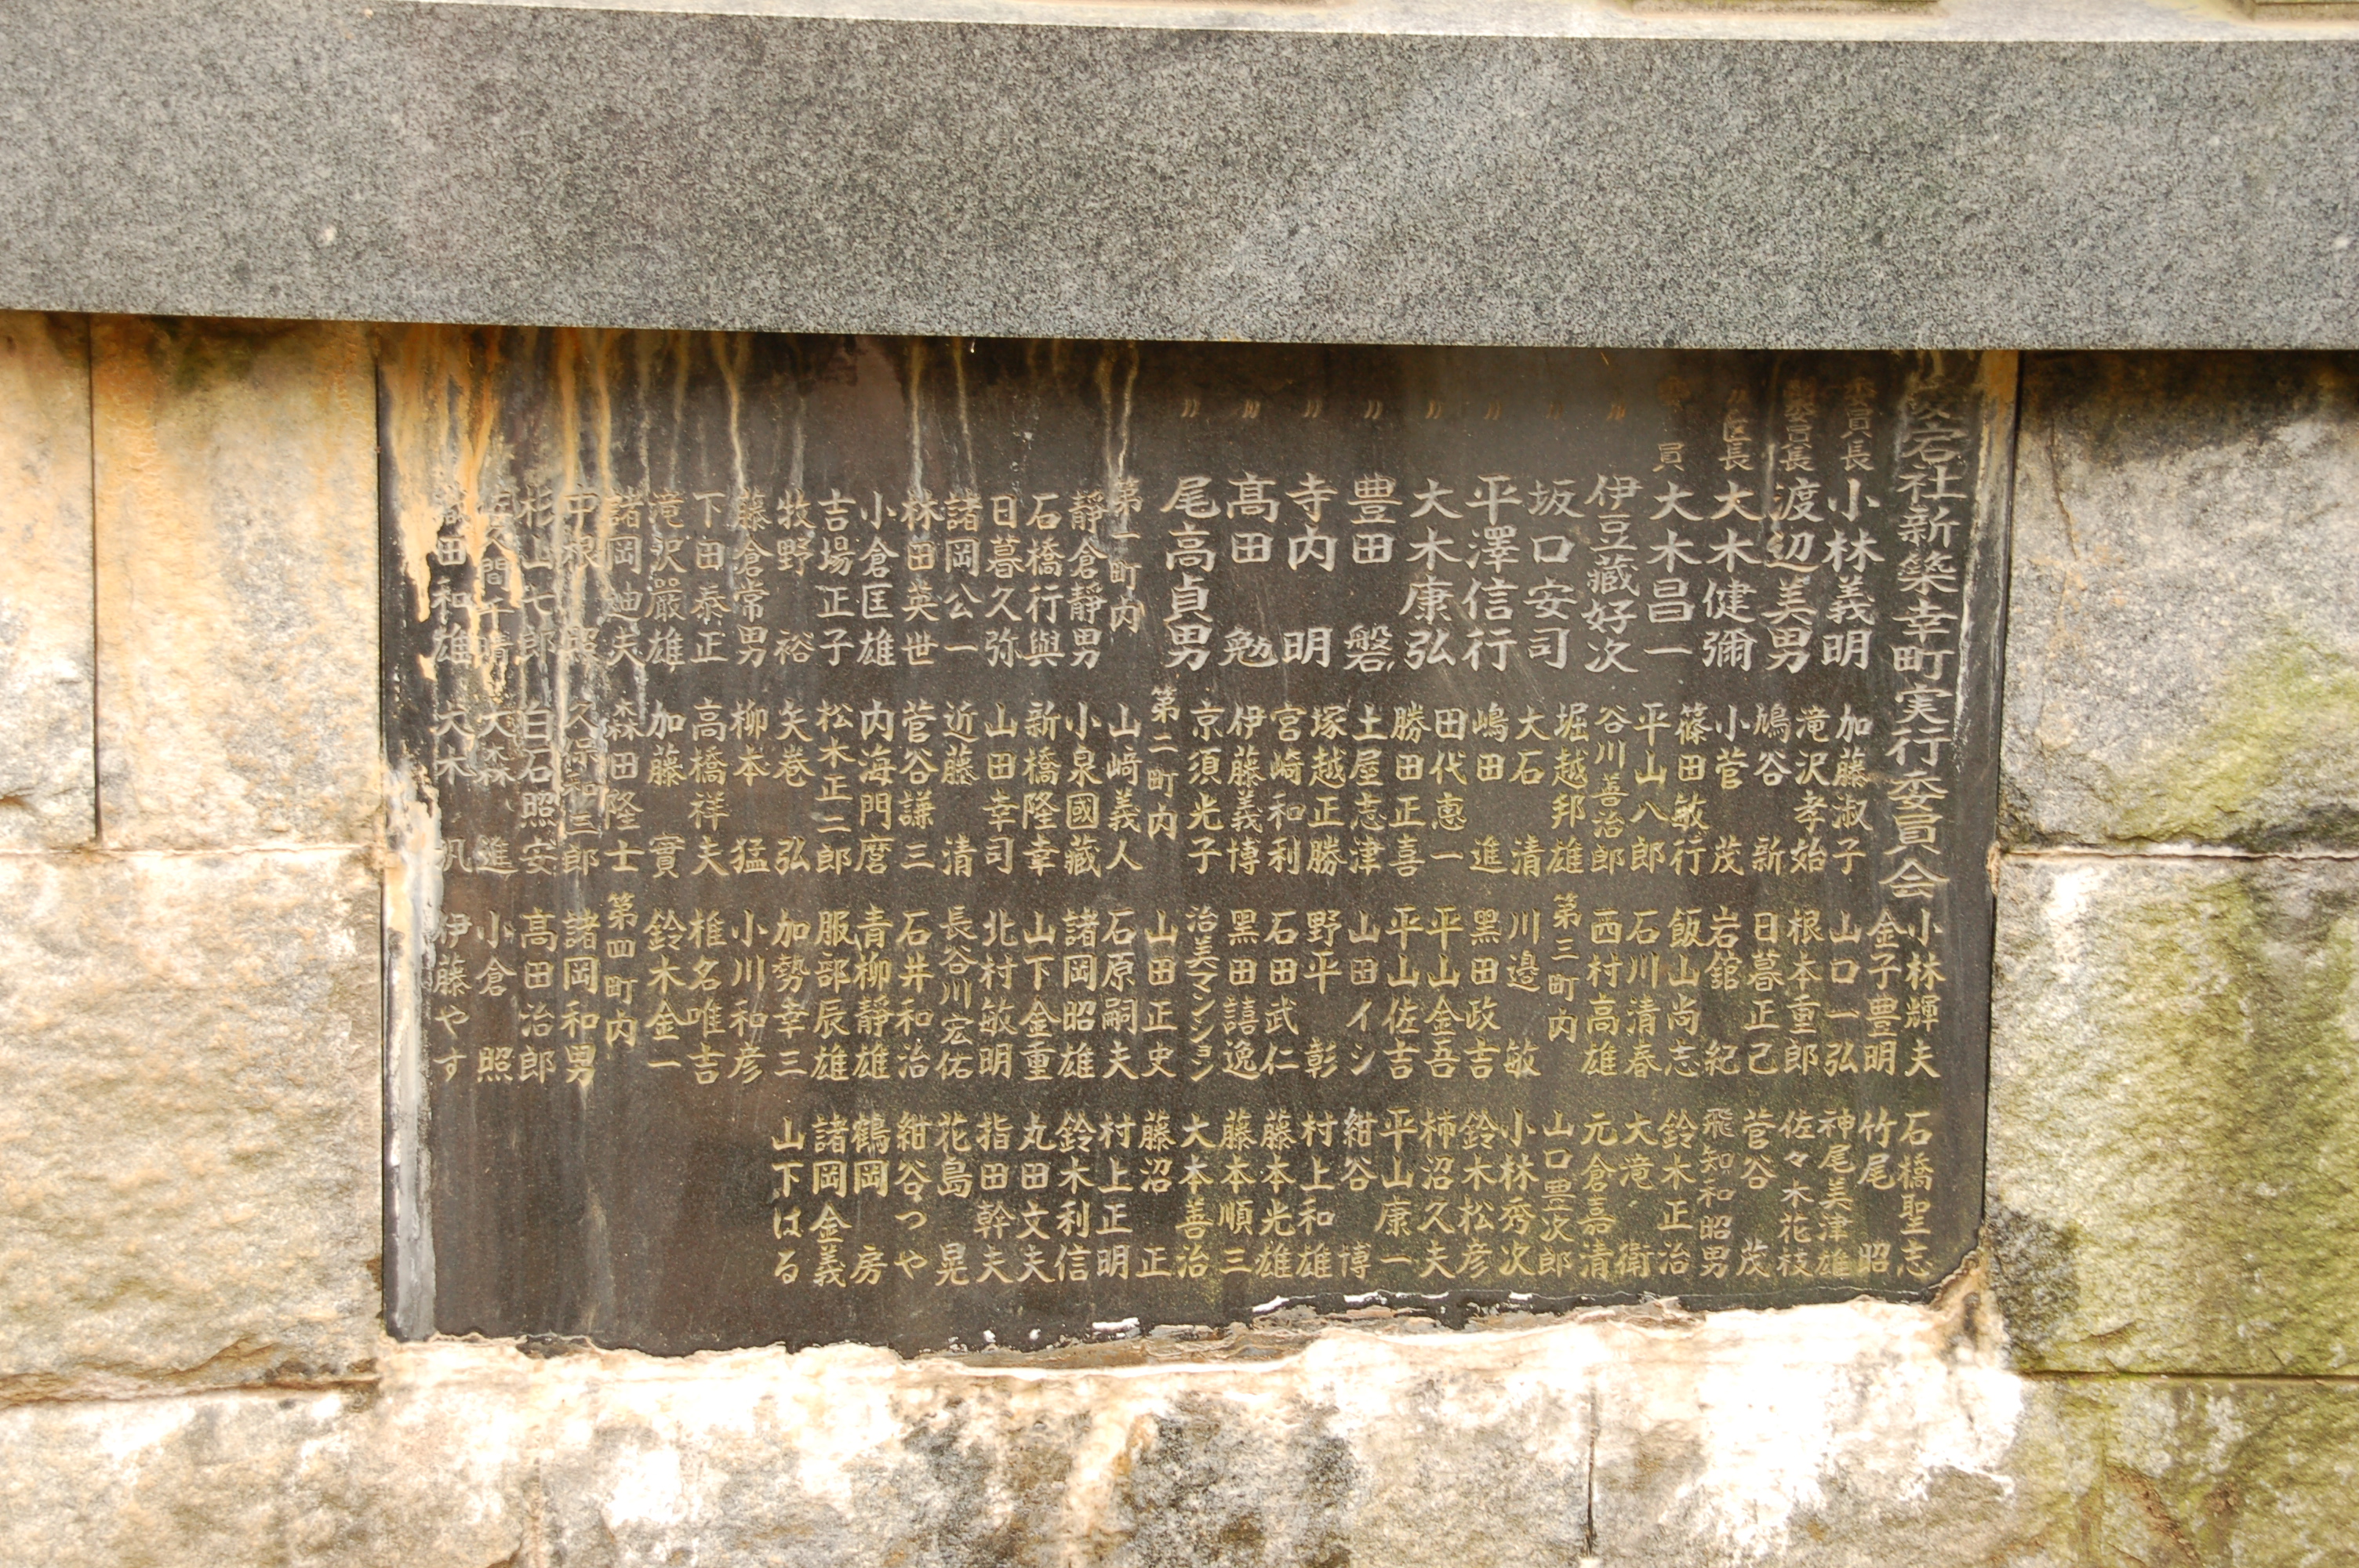 愛宕社新築幸町実行委員会
委員長 小林義明
副委員長 渡辺美男
〃区長 大木健彌
員 大木昌一
〃 伊豆蔵好次
〃 坂口安司
〃 平澤信行
〃 大木康弘
〃 豊田 磐
〃 寺内 明
〃 髙田 勉
〃 尾高貞男
第一町内
靜倉靜男
石橋行與
日暮久弥
諸岡公一
林田英世
小倉匡雄
吉場正子
牧野 裕
藤倉常男
下田泰正
滝沢厳雄
諸岡迪夫
中根
杉山七郎
佐久間千晴
田和雄
加藤淑子
滝沢孝始
鳩谷 新
小菅 茂
篠田敏行
平山八郎
谷川善治郎
堀越邦雄
大石 清
嶋田 進
田代恵一
勝田正喜
土屋志津
塚越正勝
宮崎和利
伊藤義博
京須光子
第二町内
山﨑義人
小泉國藏
新橋隆幸
山田幸司
近藤 清
菅谷謙三
内海門麿
松木正二郎
矢巻 弘
柳本 猛
高橋祥夫
加藤 實
森田隆士
久保和三郎
白石照安
大森 進
大木 帆
小林輝夫
金子豊明
山口一弘
根本重郎
日暮正己
岩舘 紀
飯山尚志
石川清春
西村高雄
第三町内
川邉 敏
黑田政吉
平山金吾
平山佐吉
山田イシ
野平 彰
石田武仁
黑田譆逸
治美マンション
山田正史
石原嗣夫
諸岡昭雄
山下金重
北村敏明
長谷川宏佑
石井和治
青柳靜雄
服部辰雄
加勢幸三
小川和彦
椎名唯吉
鈴木金一
第四町内
諸岡和男
高田治郎
小倉 照
伊藤やす
石橋聖志
竹尾 昭
神尾美津雄
佐々木花枝
菅谷 茂
飛知和昭男
鈴木正治
大滝 衛
元倉嘉清
山口豊次郎
小林秀次
鈴木松彦
柿沼久夫
平山康一
紺谷 博
村上和雄
藤本光雄
藤本順三
大本善治
藤沼 正
村上正明
鈴木利信
丸田文夫
指田幹夫
花島 晃
紺谷つや
鶴岡 房
諸岡金義
山下はる